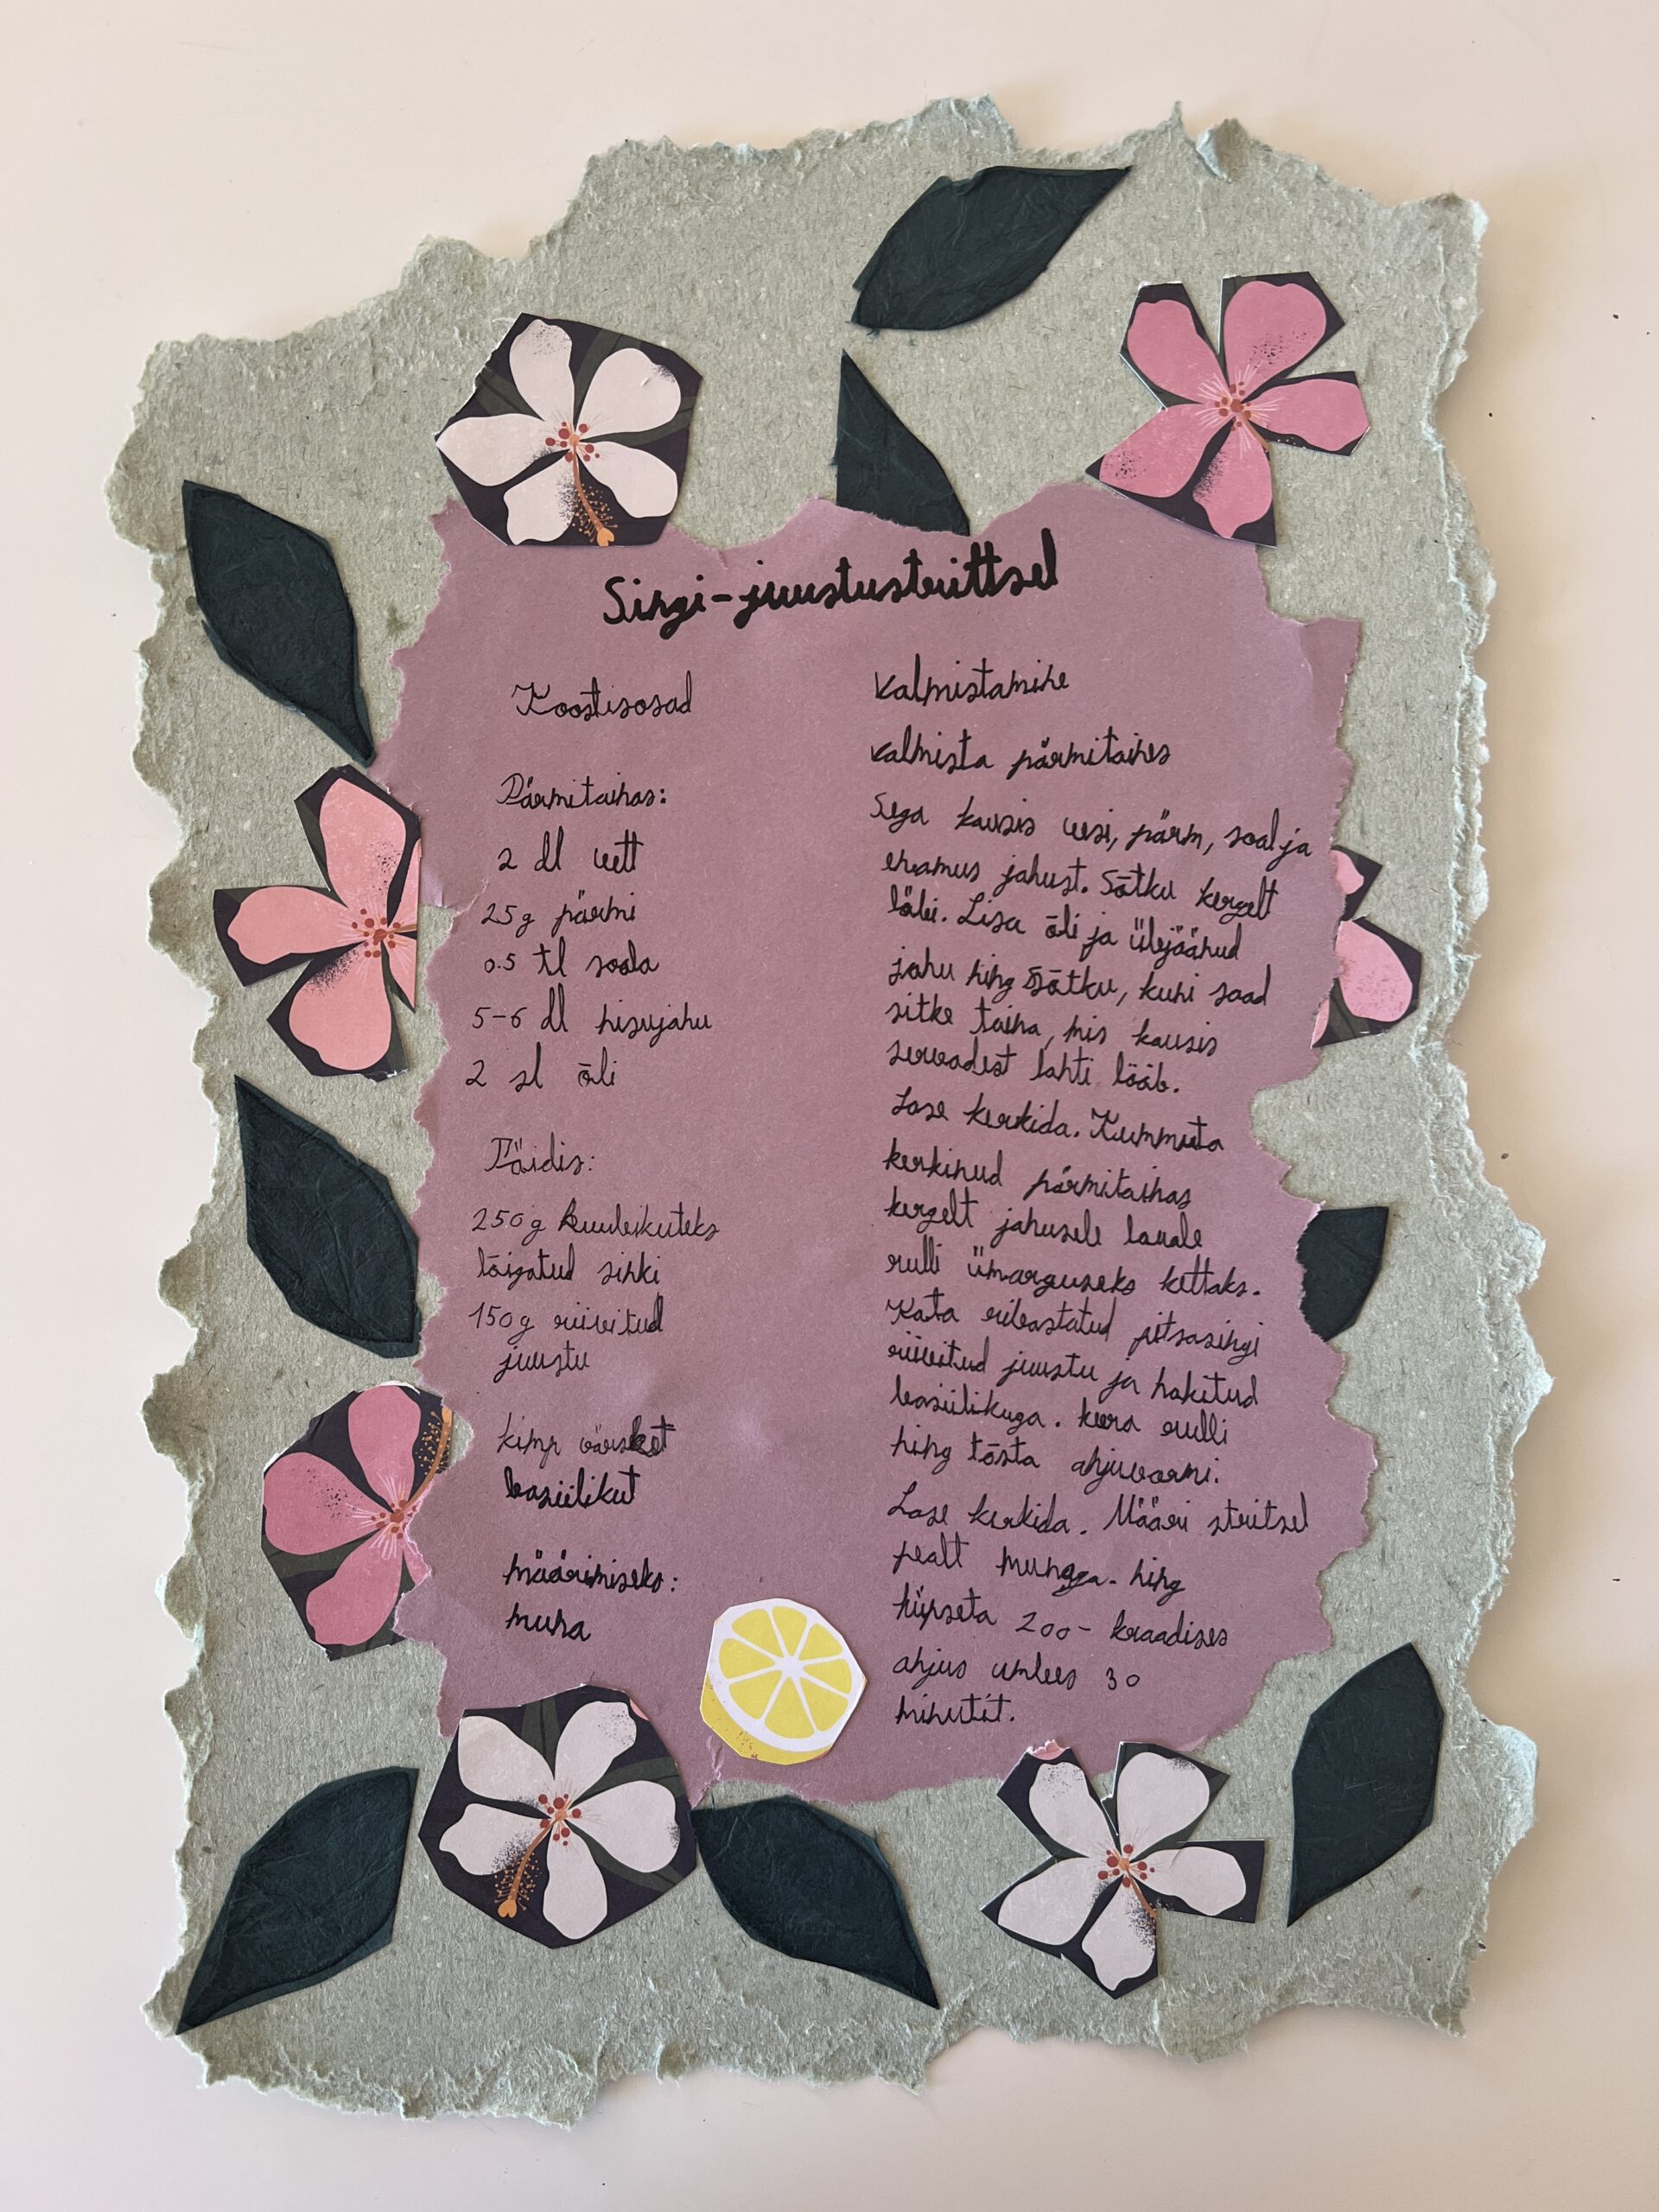 Singi-juustustrittsel
Koostisosad
Pärmitainas:
2 dl vett
25g pärmi
0.5 tl soola
5-6 dl nisujahu
2 sl õli
Täidis:
250g kuubikuteks
lõigatud sinki
150g riivitud
juustu
kimp värsket
basiilikut
määrimiseks:
muna
Valmistamine
Valmista pärmitaines
Sega kausis vesi, pärm, sool ja
enamus jahust. Sõtku kergelt
läbi. Lisa õli ja ülejäänud
jahu ning sõtku, kuni saad
sitke taina, mis kausis
servadest lahti lööb.
Lase kerkida. Kummuta
kerkinud pärmitainas
kergelt jahusele lauale
rulli ümarguseks kettaks.
Kata ribastatud pitsasingi
riivitud juustu ja hakitud
basiilikuga. keera rulli
ning tõsta ahjuvormi.
Lase kerkida. Määri stritsel
pealt munaga. ning
küpseta 200- kraadises
ahjus umbes 30
minutit.